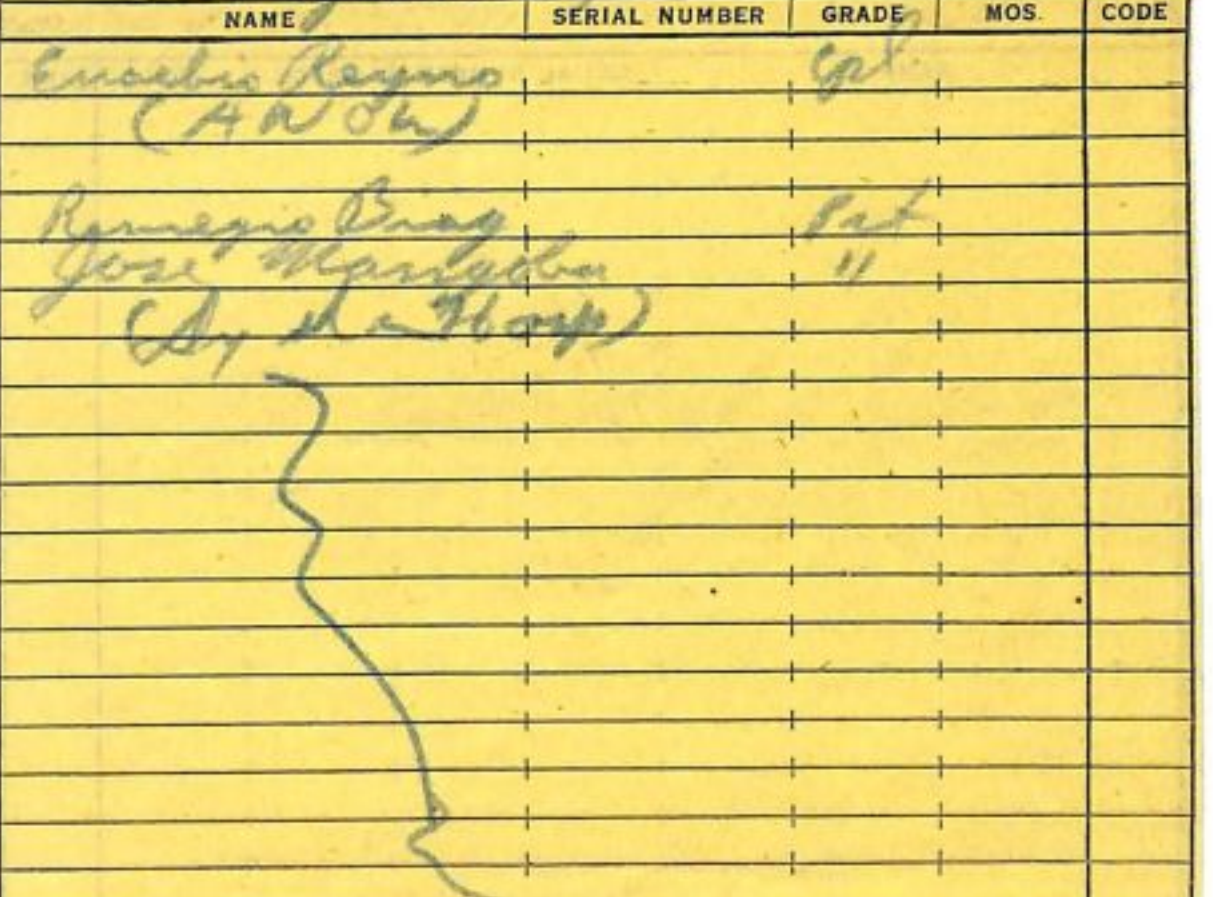 NAME SERIAL NUMBER GRADE MOS. CODE
Eusebio Reyno Cpl.
Remegio Biag Pvt
Jose Mangoba "